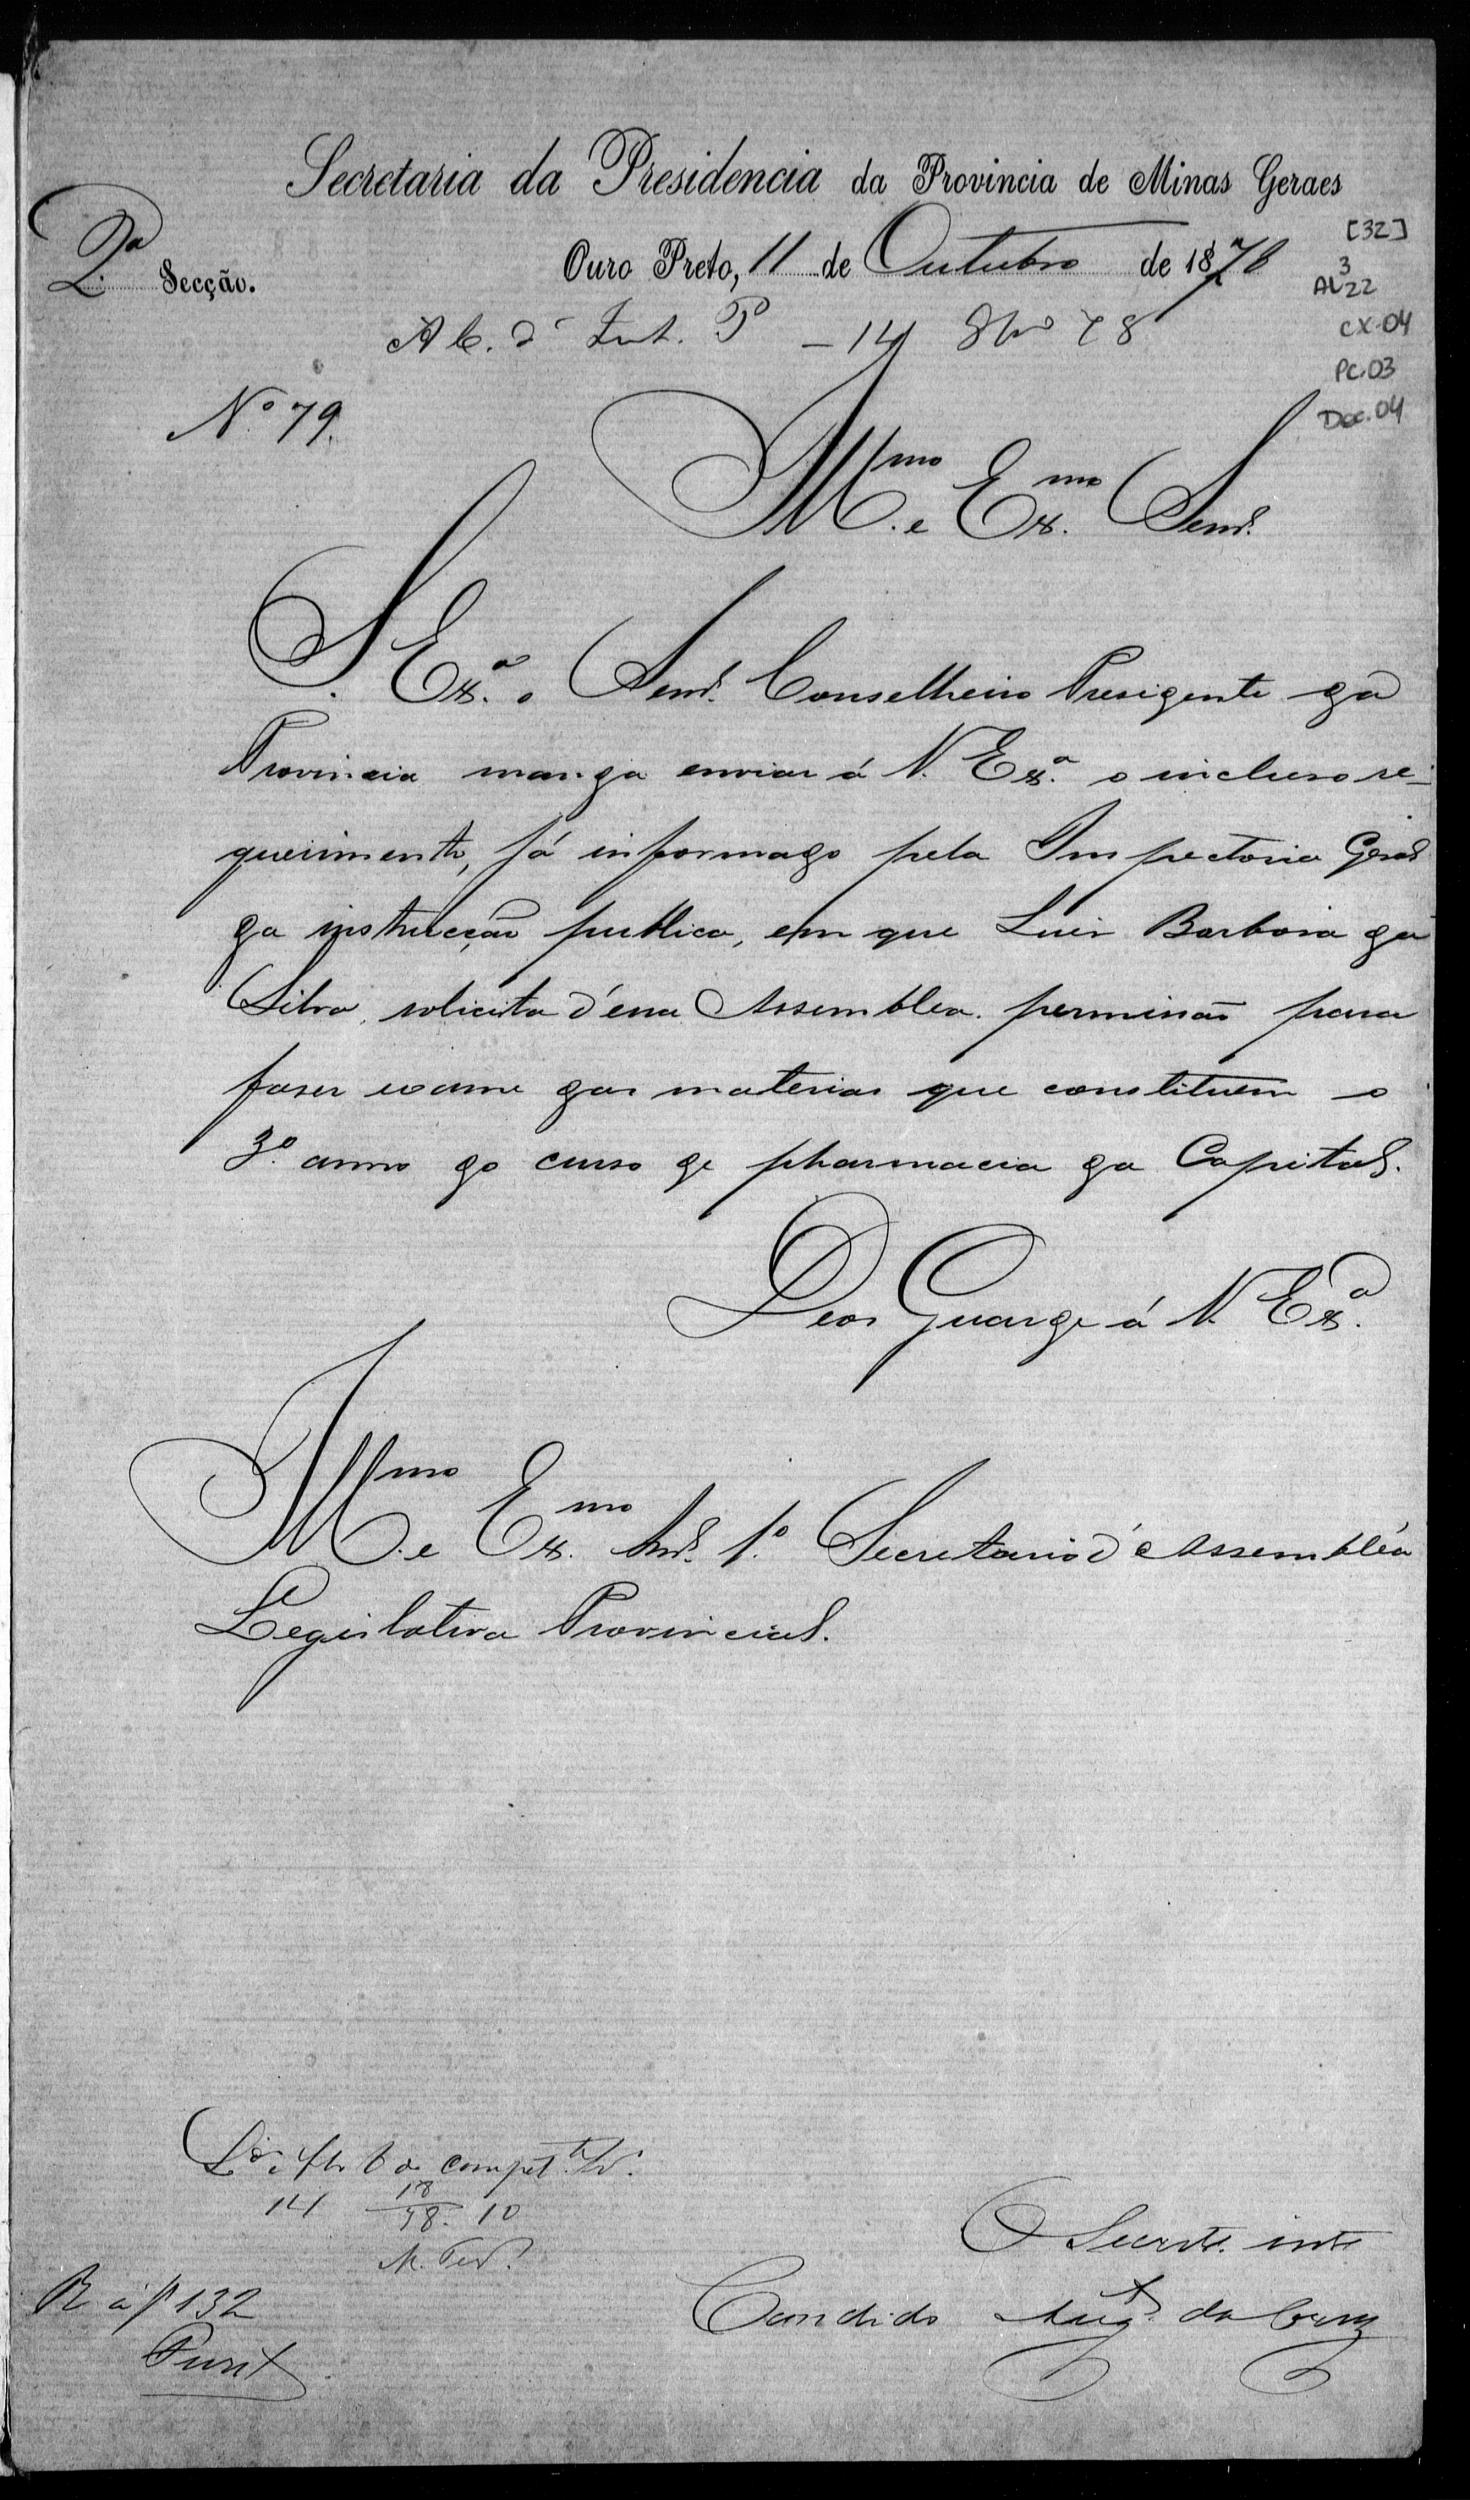 Secretaria da Presidencia da Provincia de Minas Geraes
2.ª Secção.
Ouro Preto, 11 de Outubro de 1878
[32]
3
AL 22
CX.04
PC.03
Doc.04
A C. d' Inst. P – 14 8bro 78
Nº 79.
Illmo. e Exmo. Senr.
S. Exª. o Senr. Conselheiro Presidente da
Provincia manda enviar á V. Exª. o incluso re-
querimento, já informado pela Inspectoria Geral
da instrucção publica, em que Luis Barbosa da
Silva, solicita d'essa Assembléa permissão para
faser exame das materias que constituem o
3.º anno do curso de pharmacia da Capital.
Deos Guarde á V. Exª.
Illmo. e Exmo. Snr. 1.º Secretario d'Assembléa
Legislativa Provincial.
14 18 78. 10
R a f 132
O Secretº. intº
Candido Augº. da Cruz